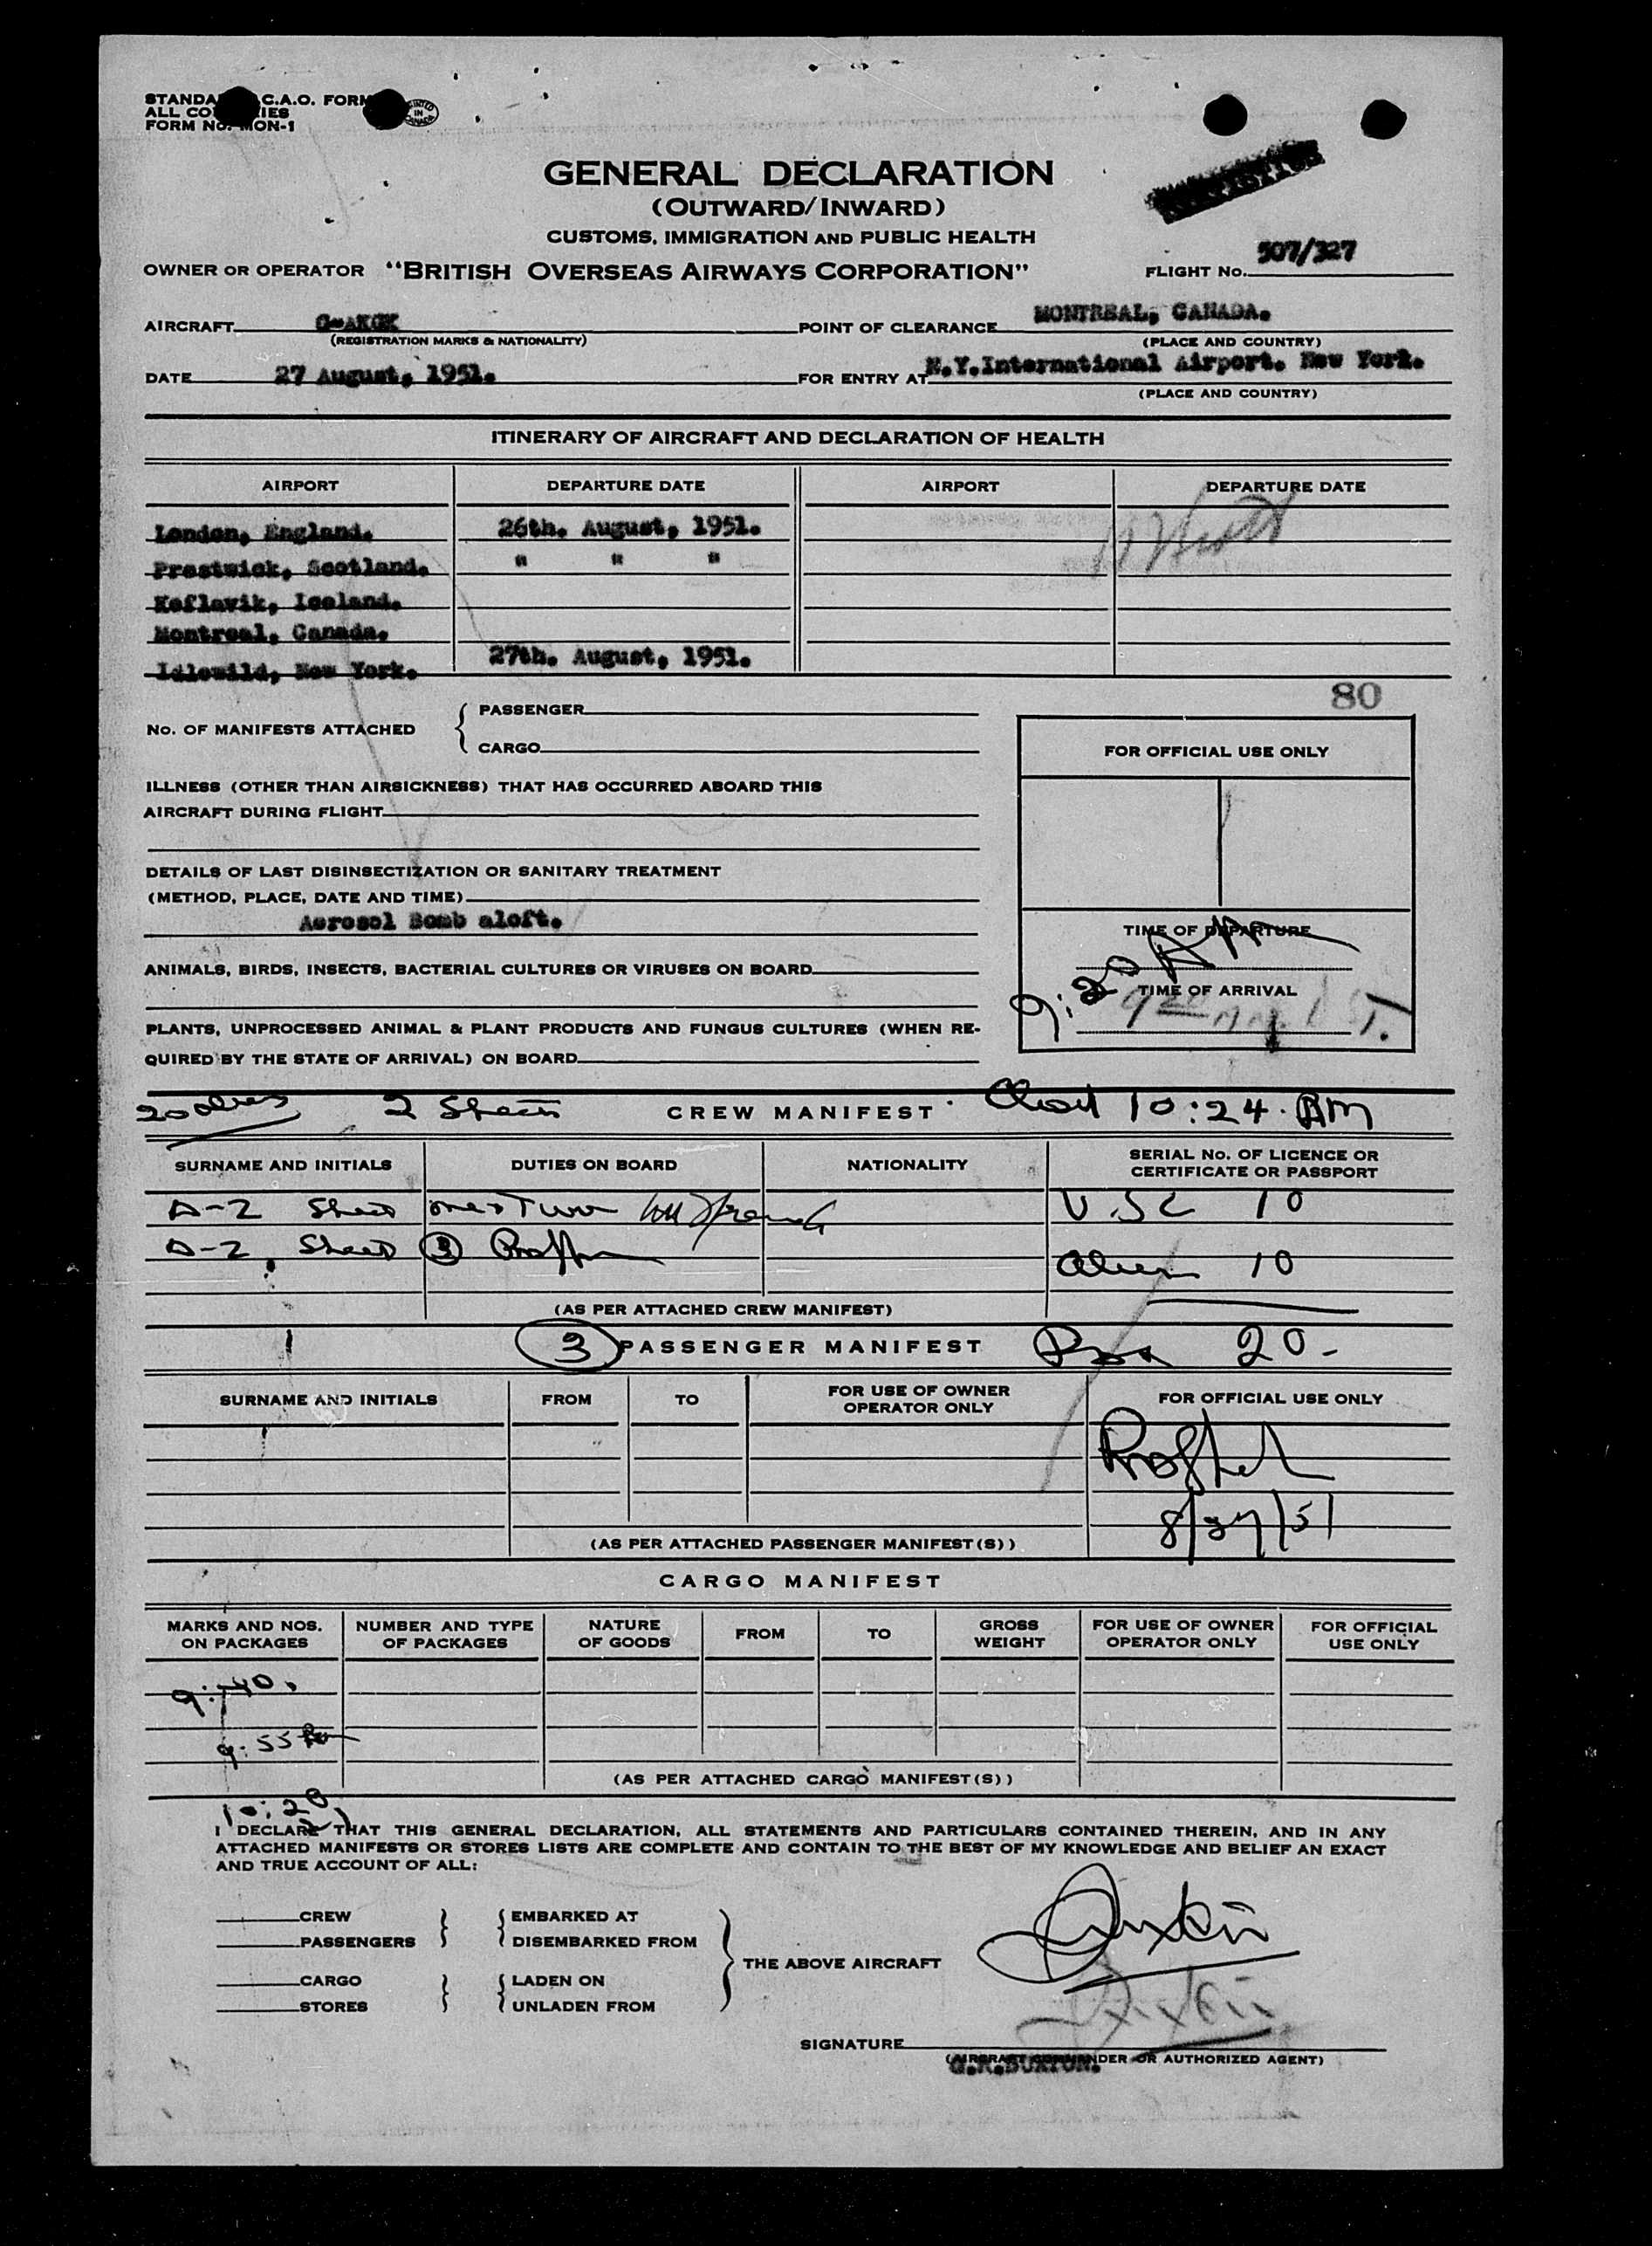 STANDA C.A.O. FORM
ALL CO IES
FORM No. MON-1
PRINTED IN CANADA
GENERAL DECLARATION
(OUTWARD/INWARD)
CUSTOMS, IMMIGRATION AND PUBLIC HEALTH
OWNER OR OPERATOR "BRITISH OVERSEAS AIRWAYS CORPORATION" FLIGHT No. 507/327
AIRCRAFT G-AKGK POINT OF CLEARANCE MONTREAL, CANADA.
(REGISTRATION MARKS & NATIONALITY) (PLACE AND COUNTRY)
DATE 27 August, 1951. FOR ENTRY AT N.Y.International Airport. New York.
(PLACE AND COUNTRY)
ITINERARY OF AIRCRAFT AND DECLARATION OF HEALTH
AIRPORT DEPARTURE DATE AIRPORT DEPARTURE DATE
London, England. 26th. August, 1951.
Prestwick, Scotland. " " "
Keflavik, Iceland.
Montreal, Canada.
Idlewild, New York. 27th. August, 1951.
80
No. OF MANIFESTS ATTACHED { PASSENGER
CARGO
FOR OFFICIAL USE ONLY
ILLNESS (OTHER THAN AIRSICKNESS) THAT HAS OCCURRED ABOARD THIS
AIRCRAFT DURING FLIGHT
DETAILS OF LAST DISINSECTIZATION OR SANITARY TREATMENT
(METHOD, PLACE, DATE AND TIME)
Aerosol Bomb aloft.
TIME OF DEPARTURE
ANIMALS, BIRDS, INSECTS, BACTERIAL CULTURES OR VIRUSES ON BOARD
9:20 AM
TIME OF ARRIVAL
PLANTS, UNPROCESSED ANIMAL & PLANT PRODUCTS AND FUNGUS CULTURES (WHEN RE-
QUIRED BY THE STATE OF ARRIVAL) ON BOARD
2 Sheets CREW MANIFEST 10:24 AM
SURNAME AND INITIALS DUTIES ON BOARD NATIONALITY SERIAL No. OF LICENCE OR
CERTIFICATE OR PASSPORT
A-2 Sheet U.S.C 10
A-2 Sheet 3 Alien 10
(AS PER ATTACHED CREW MANIFEST)
3 PASSENGER MANIFEST 20-
SURNAME AND INITIALS FROM TO FOR USE OF OWNER
OPERATOR ONLY FOR OFFICIAL USE ONLY
8/27/51
(AS PER ATTACHED PASSENGER MANIFEST(S))
CARGO MANIFEST
MARKS AND NOS.
ON PACKAGES NUMBER AND TYPE
OF PACKAGES NATURE
OF GOODS FROM TO GROSS
WEIGHT FOR USE OF OWNER
OPERATOR ONLY FOR OFFICIAL
USE ONLY
9:40.
9:55
(AS PER ATTACHED CARGO MANIFEST(S))
10:20
I DECLARE THAT THIS GENERAL DECLARATION, ALL STATEMENTS AND PARTICULARS CONTAINED THEREIN, AND IN ANY
ATTACHED MANIFESTS OR STORES LISTS ARE COMPLETE AND CONTAIN TO THE BEST OF MY KNOWLEDGE AND BELIEF AN EXACT
AND TRUE ACCOUNT OF ALL:
CREW } { EMBARKED AT
PASSENGERS DISEMBARKED FROM
THE ABOVE AIRCRAFT
CARGO } { LADEN ON
STORES UNLADEN FROM
SIGNATURE
(AIRCRAFT COMMANDER OR AUTHORIZED AGENT)
G.R.BUXTON.